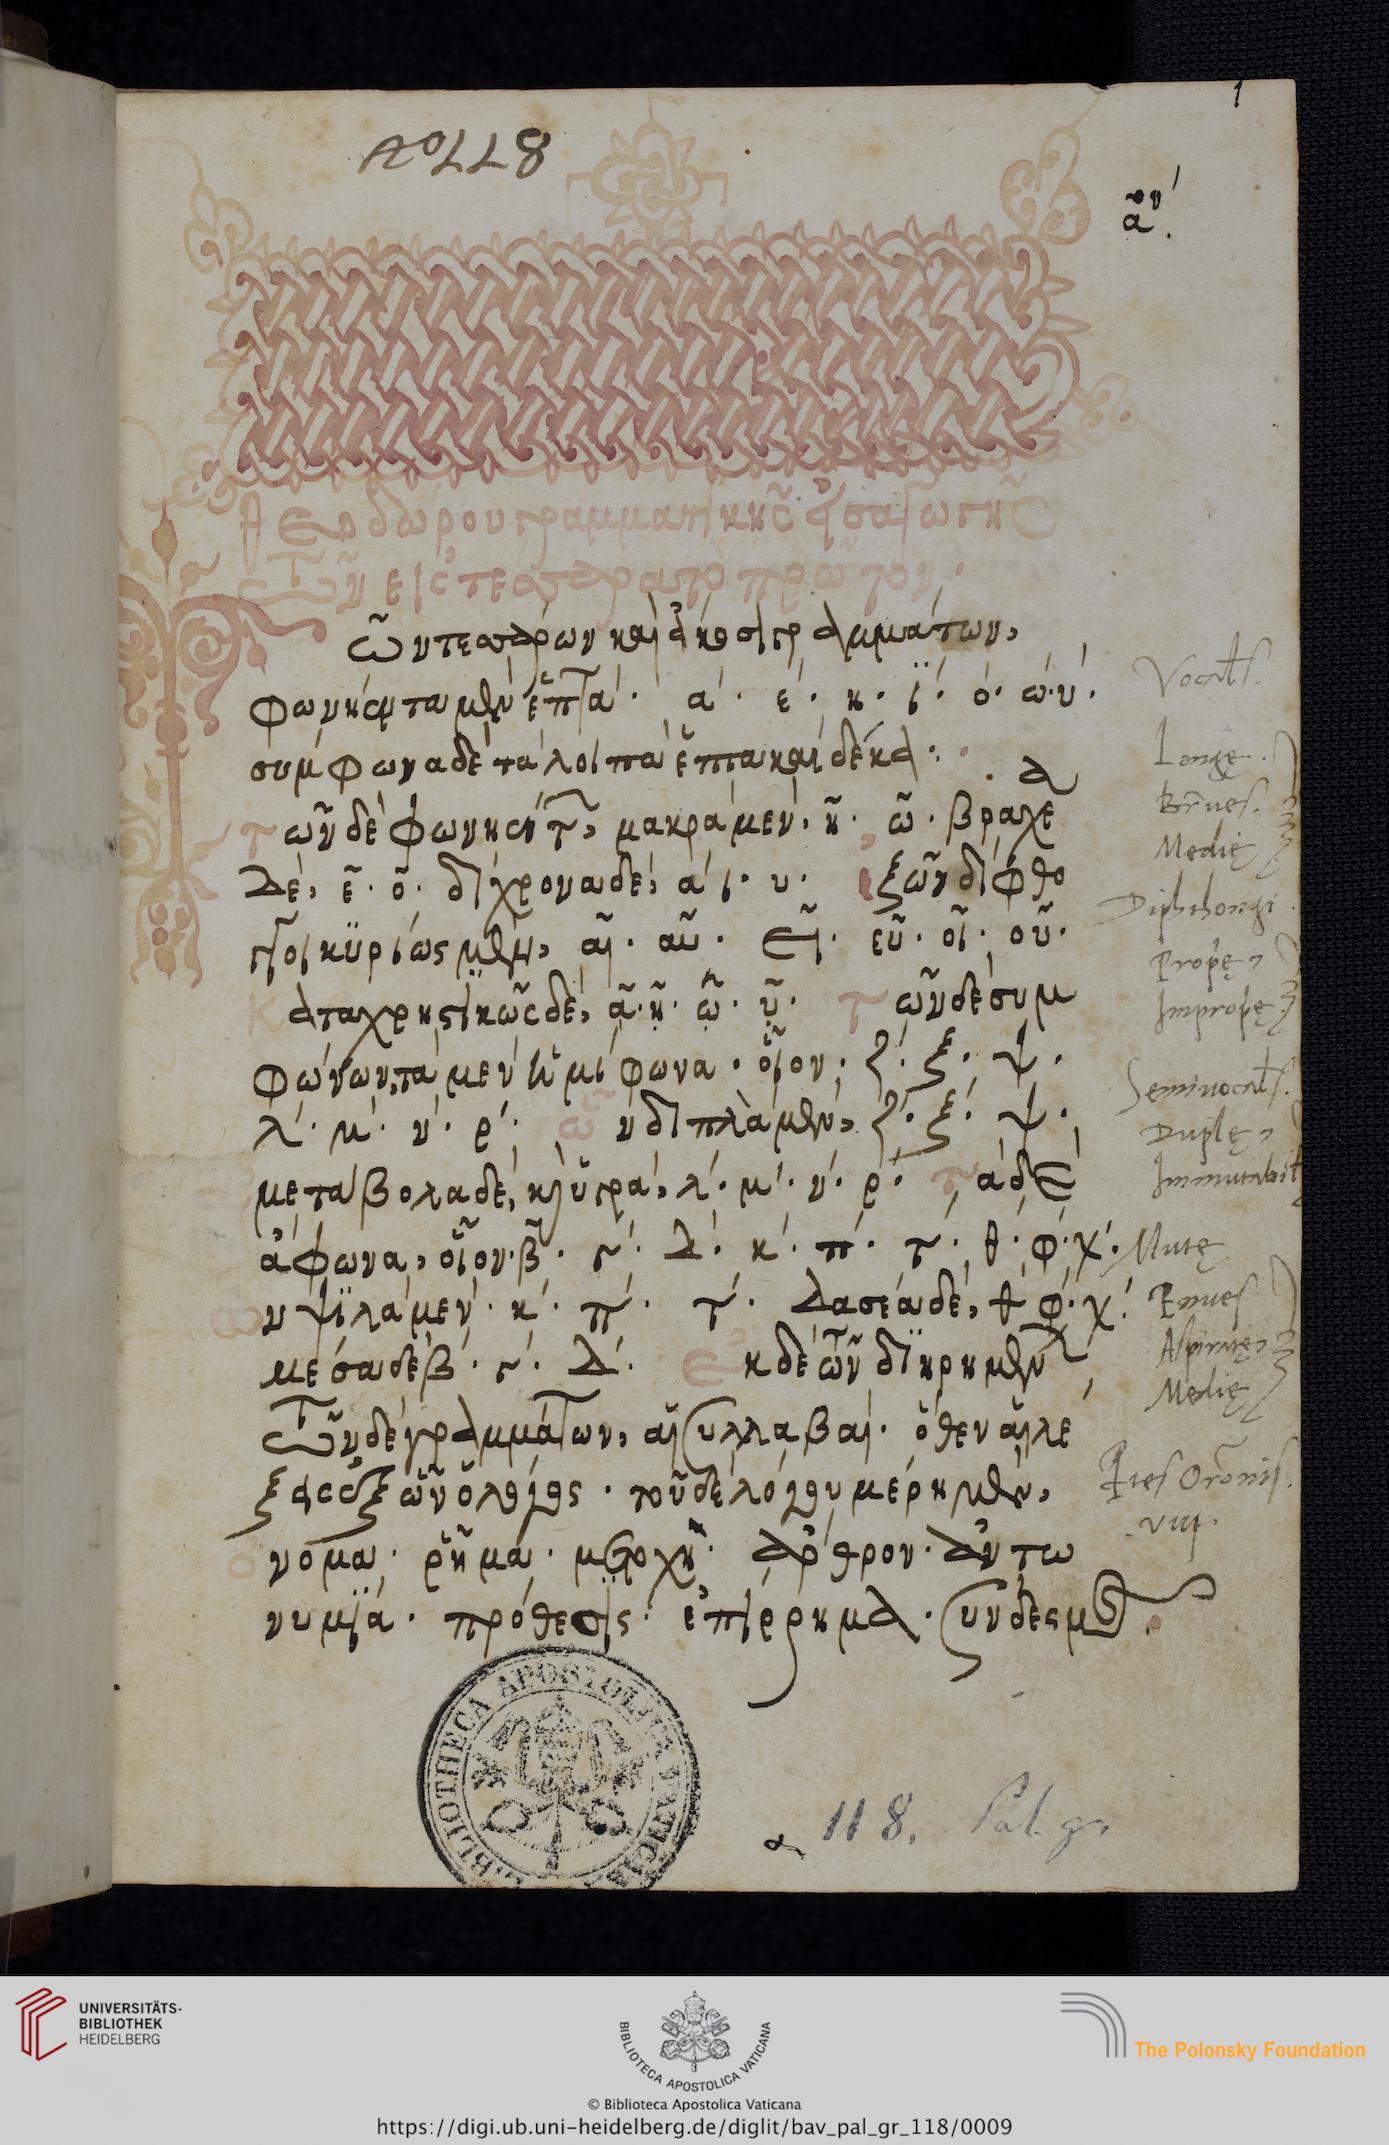 1
αον´.
Θεοδώρου γραμματικῆς εἰσαγωγῆς
τῶν εἰς τέσσαρα τὸ πρῶτον.
ῶν τεσσάρων καὶ εἴκοσι γραμμάτων,
φωνήεντα μὲν ἑπτά· α· ε· η· ι· ο· ω· υ·
σύμφωνα δὲ τὰ λοιπὰ ἑπτακαίδεκα·
τῶν δὲ φωνηέντων, μακρὰ μὲν· η· ω· βραχέα
δὲ, ε· ο· δίχρονα δὲ, α· ι· υ· ἐξ ὧν δίφθο
γγοι κυρίως μὲν, αι· αυ· ει· ευ· οι· ου·
Καταχρηστικῶς δὲ, ᾳ· ῃ· ῳ· υι· τῶν δὲ συμ
φώνων, τὰ μὲν ἡμίφωνα· οἷον· ζ· ξ· ψ·
λ· μ· ν· ρ· ὧν διπλᾶ μὲν, ζ· ξ· ψ·
ἀμετάβολα δὲ, κ̀ ὑγρὰ, λ· μ· ν· ρ· τὰ δὲ
ἄφωνα, οἷον· β· γ· δ· κ· π· τ· θ· φ· χ·
ὧν ψιλὰ μὲν· κ· π· τ· δασέα δὲ, θ· φ· χ·
μέσα δὲ β· γ· δ· Ἐκ δὲ τῶν διῃρημένων
τῶν δὲ γραμμάτων, αἱ συλλαβαί· ὅθεν αἱ λέ
ξεις ἐξ ὧν ὁ λόγος· τοῦ δὲ λόγου μέρη μὲν,
ὄνομα· ῥῆμα· μετοχή· ἄρθρον· ἀντω
νυμία· πρόθεσις· ἐπίρρημα· σύνδεσμος.
Vocales.
Longę.
Breves.
Medię
Diphthongi
Propę,
Impropę.
Semivocales.
Duplę,
Immutabiles
Mutę
Tenues
Aspiratę,
Medię
Ptes Orōnis.
.viii.
BIBLIOTHECA APOSTOLICA VATICANA
α 118. Pal. gr.
UNIVERSITÄTS-
BIBLIOTHEK
HEIDELBERG
BIBLIOTECA APOSTOLICA VATICANA
The Polonsky Foundation
© Biblioteca Apostolica Vaticana
https://digi.ub.uni-heidelberg.de/diglit/bav_pal_gr_118/0009